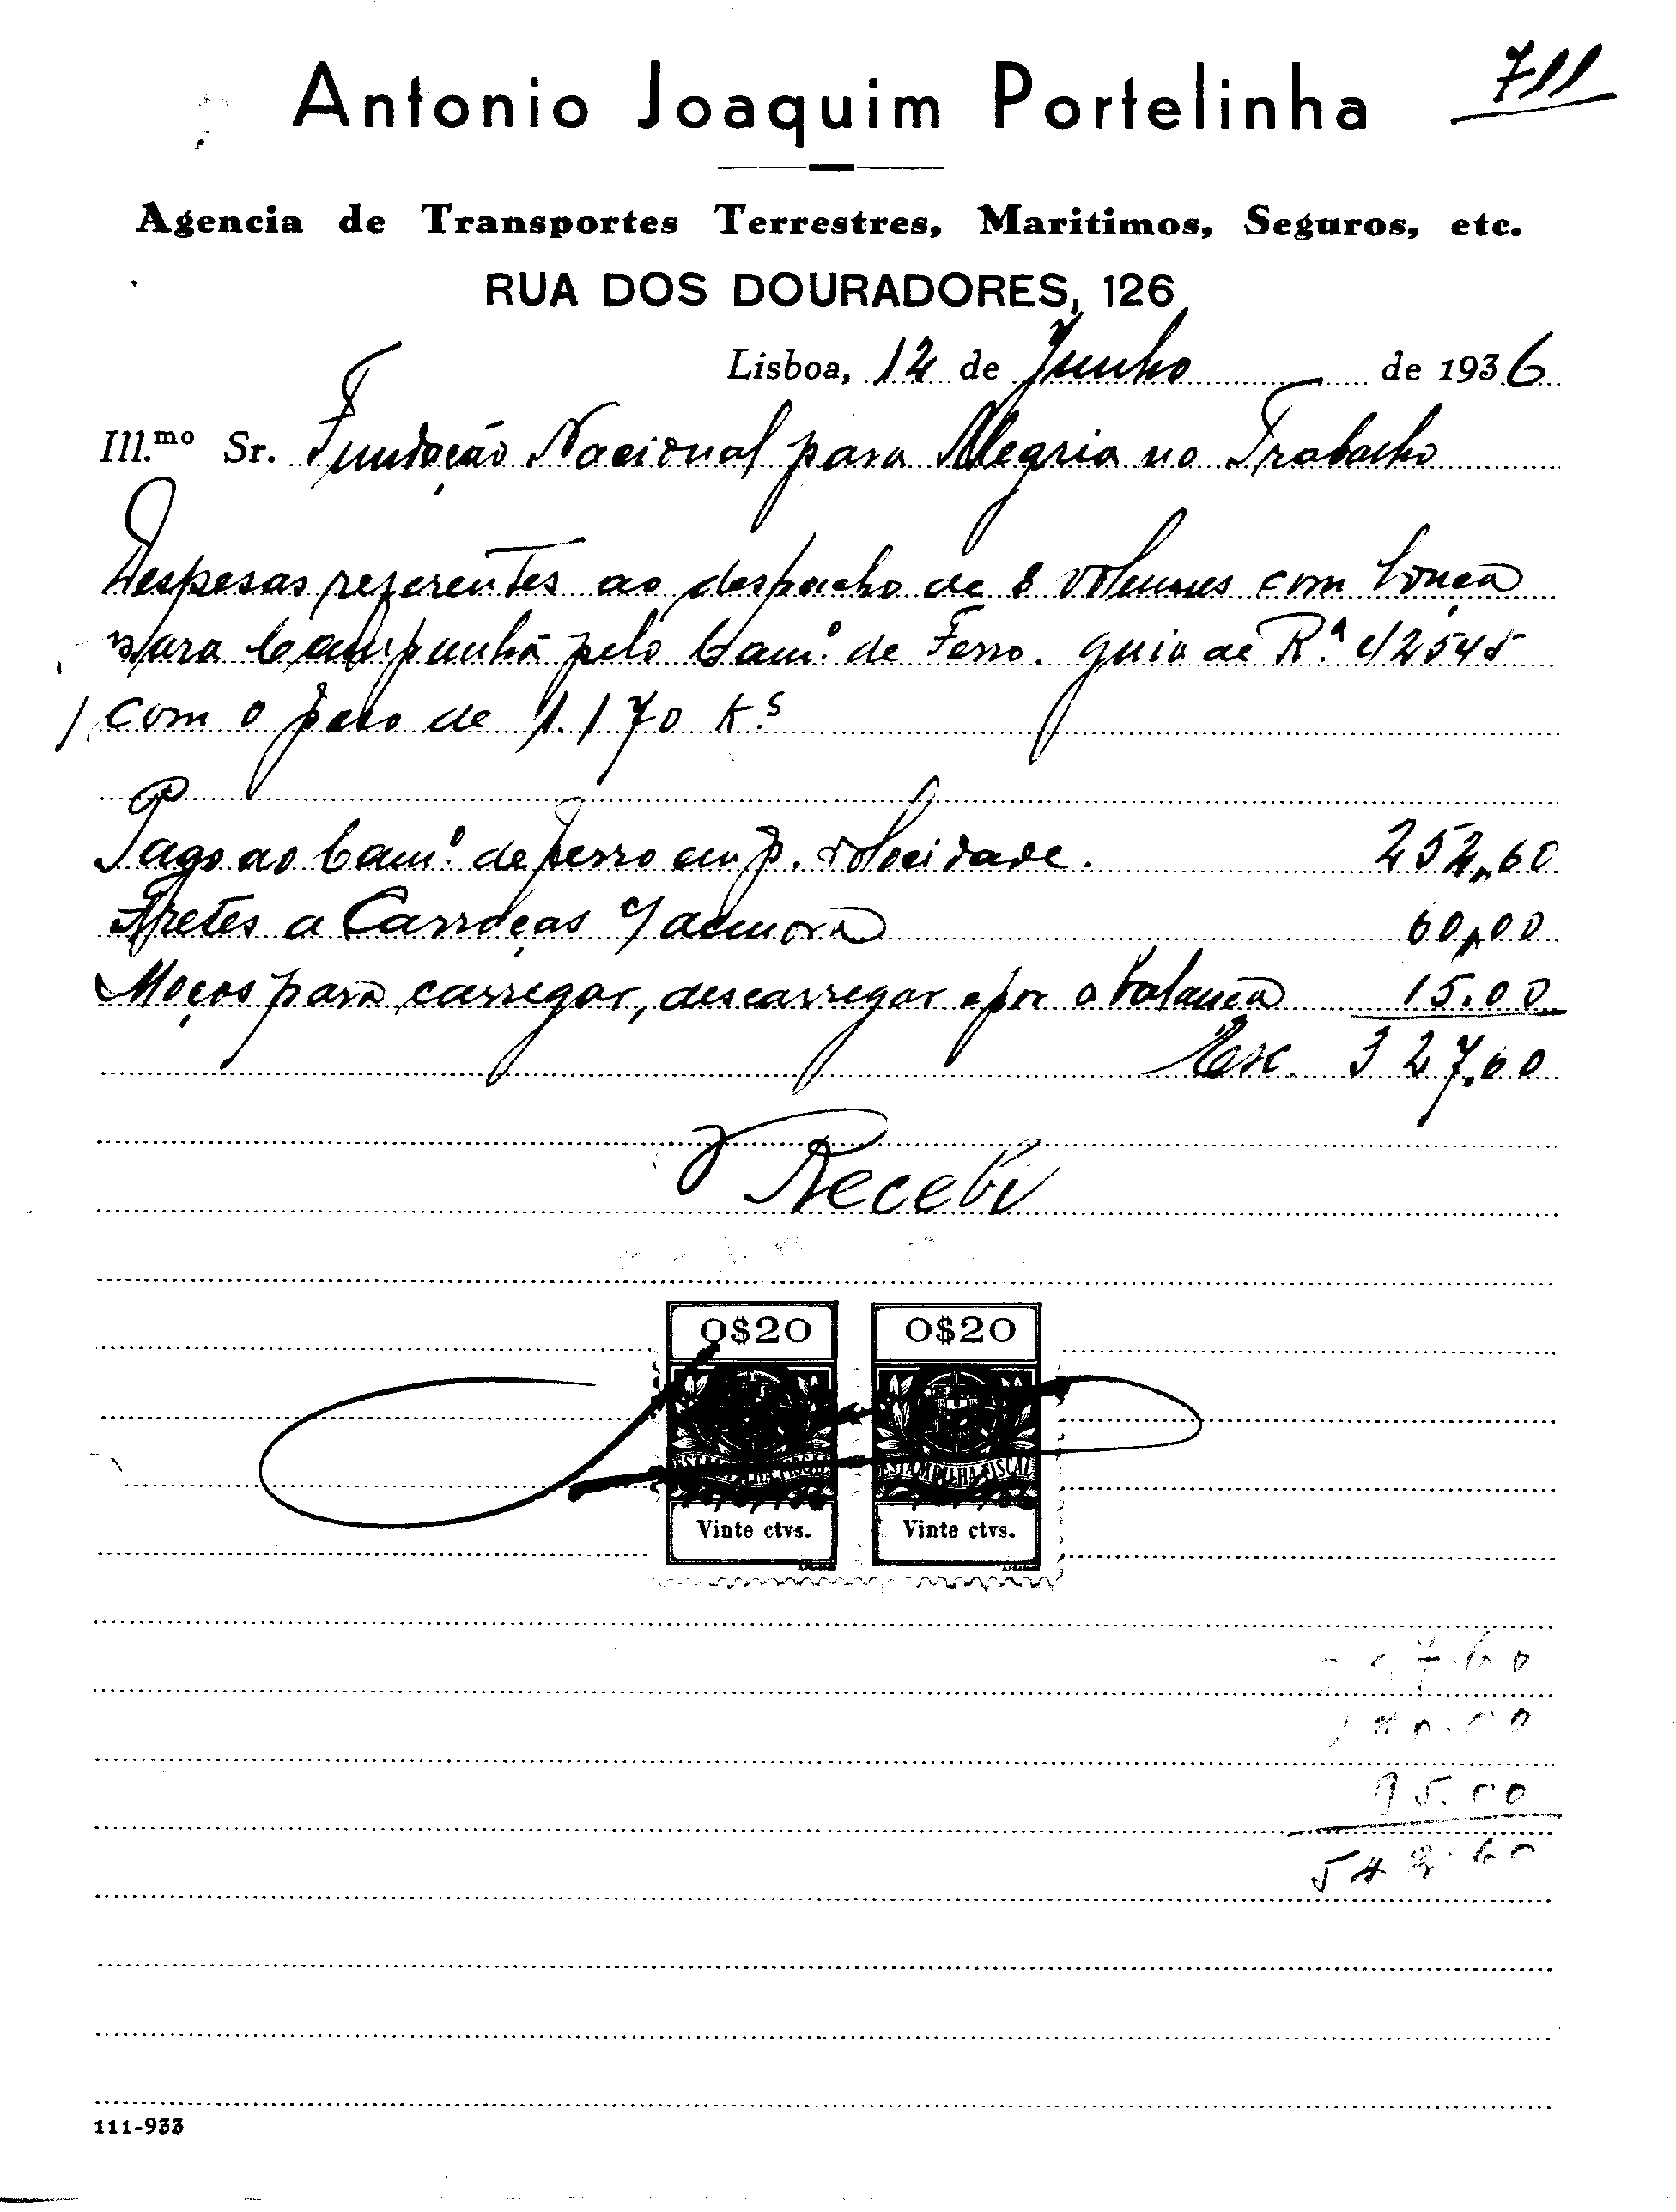 711
Antonio Joaquim Portelinha
Agencia de Transportes Terrestres, Maritimos, Seguros, etc.
RUA DOS DOURADORES, 126
Lisboa, 12 de Junho de 1936
Ill.mo Sr. Fundação Nacional para Alegria no Trabalho
Despesas referentes ao despacho de 8 volumes com louça
para Campanhã pelo Cam.º de Ferro. guia de R.ª 42545
com o peso de 1.170 K.s
Pago ao Cam.º de ferro em p. velocidade. 252,60
Fretes a Carroças 60,00
Moços para carregar, descarregar e por a balança 15.00
Esc. 327,60
Recebi
0$20 0$20
ESTAMPILHA FISCAL ESTAMPILHA FISCAL
Vinte ctvs. Vinte ctvs.
95.00
111-933